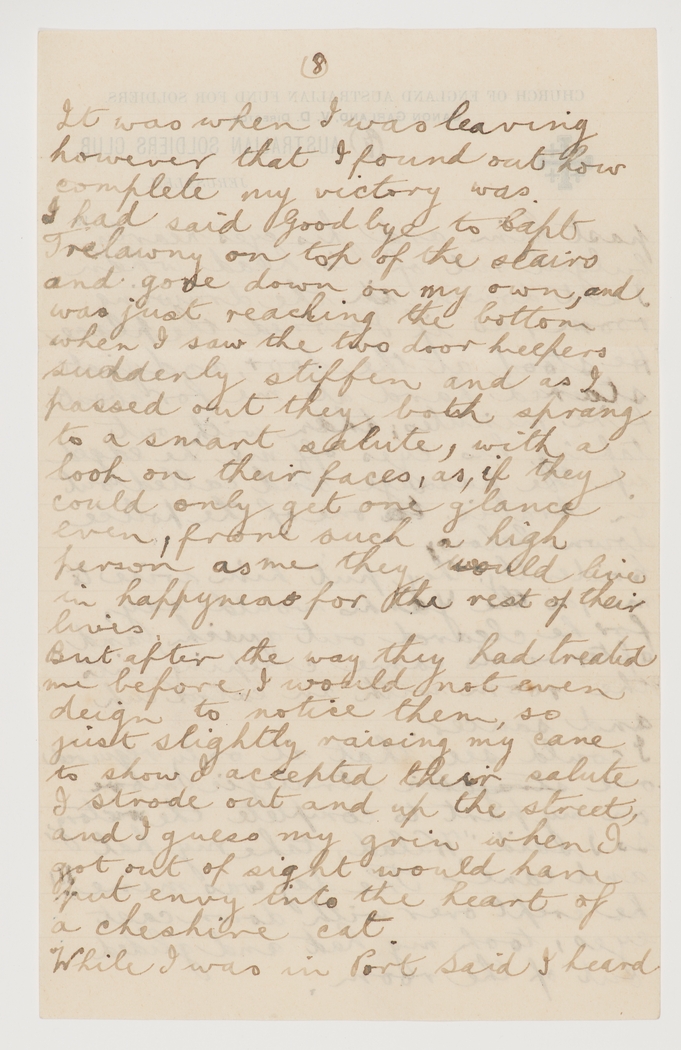 (8)
It was when I was leaving
however that I found out how
complete my victory was.
I had said Goodbye to Capt
Trelawny on top of the stairs
and gone down on my own, and
was just reaching the bottom
when I saw the two door keepers
suddenly stiffen and as I
passed out they both sprang
to a smart salute, with a
look on their faces, as, if they
could only get one glance
even, from such a high
person as me they would live
in happyness for the rest of their
lives.
But after the way they had treated
me before, I would not even
deign to notice them, so
just slightly raising my cane
to show I accepted their salute
I strode out and up the street,
and I guess my grin when I
got out of sight would have
put envy into the heart of
a cheshire cat.
While I was in Port Said I heard
CHURCH OF ENGLAND AUSTRALIAN FUND FOR SOLDIERS
AUSTRALIAN SOLDIERS CLUB